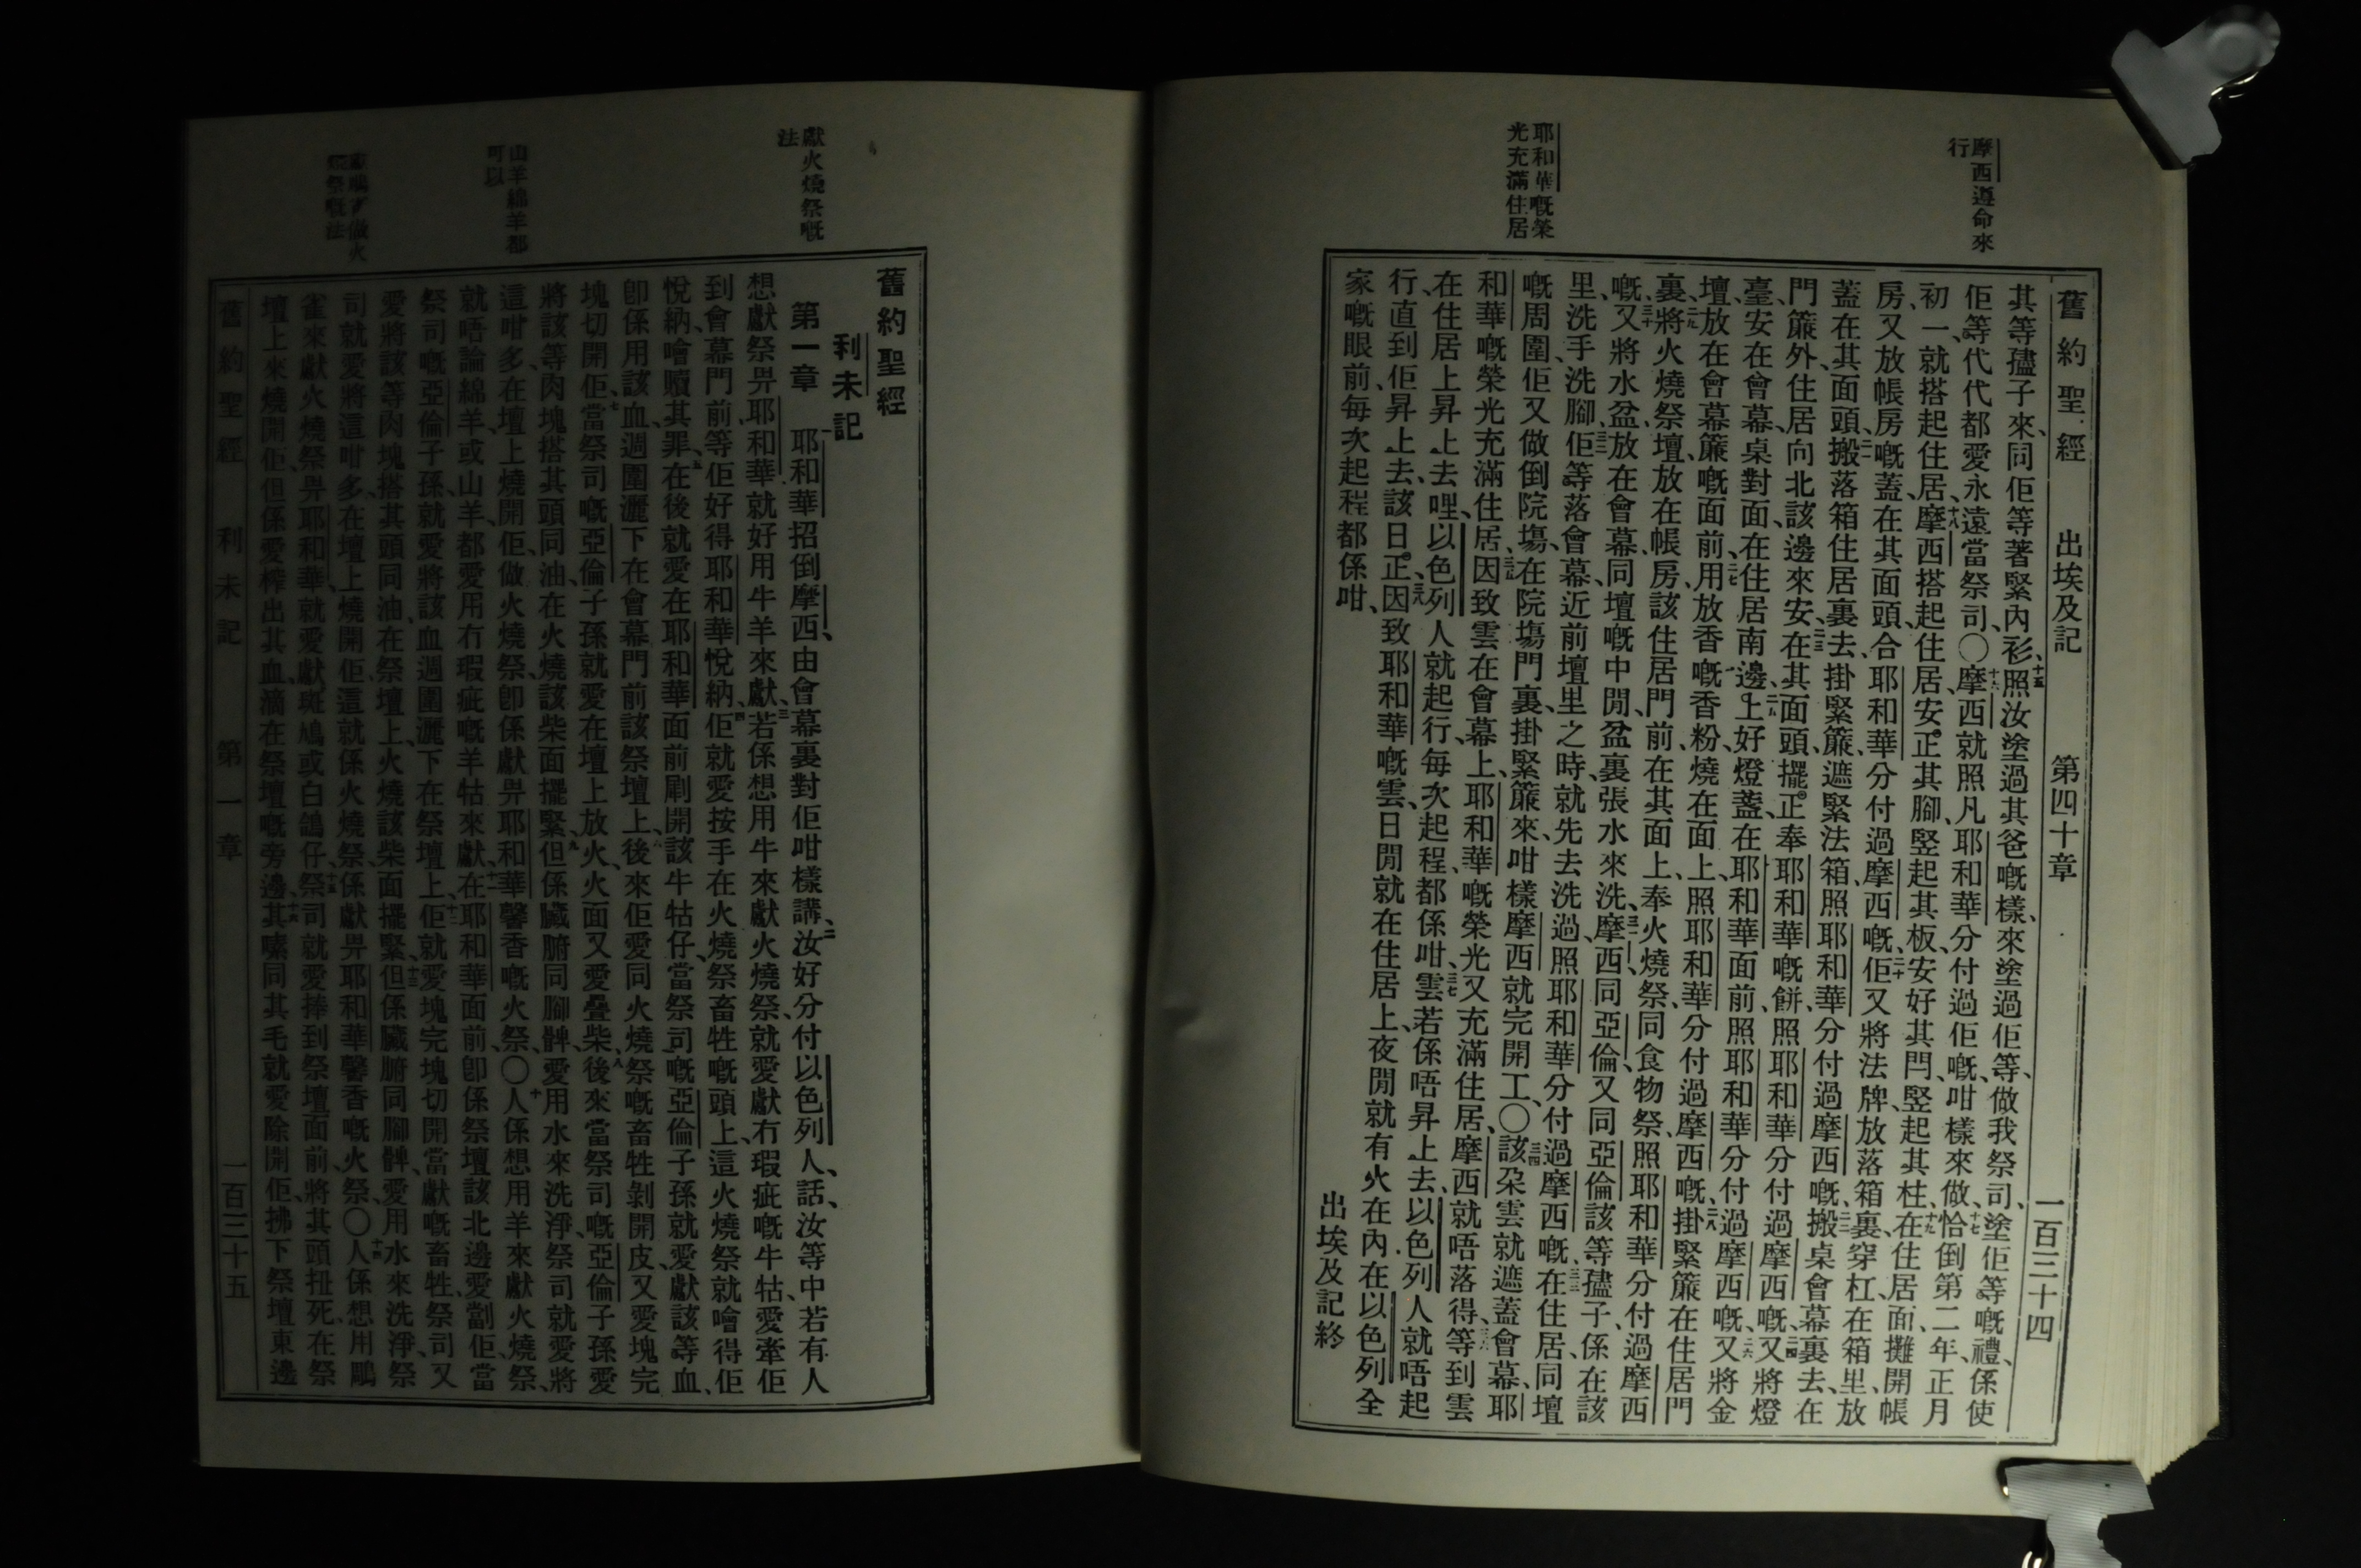 摩西遵命來
行
耶和華嘅榮
光充滿住居
舊約聖經 出埃及記 第四十章 一百三十四
其等孻子來、同佢等著緊內衫、十五照汝塗過其爸嘅樣、來塗過佢等、做我祭司、塗佢等嘅禮、係使
佢等代代都愛永遠當祭司○十六摩西就照凡耶和華分付過佢嘅、咁樣來做、十七恰倒第二年、正月
初一、就搭起住居、十八摩西搭起住居、安正其腳、竪起其板、安好其閂、竪起其柱、十九在住居面、攤開帳
房、又放帳房嘅蓋、在其面頭、合耶和華分付過摩西嘅、二十佢又將法牌、放落箱裏、穿杠在箱里、放
蓋在其面頭、二一搬落箱住居裏去、掛緊簾、遮緊法箱、照耶和華分付過摩西嘅、二二搬桌會幕裏去、在
門簾外、住居向北該邊來安、二三在其面頭、擺正奉耶和華嘅餅、照耶和華分付過摩西嘅、二四又將燈
臺、安在會幕、桌對面、在住居南邊、二五上好燈盞、在耶和華面前、照耶和華分付過摩西嘅、二六又將金
壇、放在會幕簾嘅面前、二七用放香嘅香粉、燒在面上、照耶和華分付過摩西嘅、二八掛緊簾在住居門
裏、二九將火燒祭壇、放在帳房該住居門前、在其面上、奉火燒祭、同食物祭、照耶和華分付過摩西
嘅、三十又將水盆、放在會幕、同壇嘅中閒、盆裏張水來洗、三一摩西、同亞倫、又同亞倫該等孻子、係在該
里、洗手、洗腳、三二佢等落會幕、近前壇里之時、就先去洗過、照耶和華分付過摩西嘅、三三在住居、同壇
嘅周圍、佢又做倒院塲、在院塲門裏、掛緊簾來、咁樣摩西就完開工、○三四該朵雲就遮蓋會幕、耶
和華嘅榮光充滿住居、三五因致雲在會幕上、耶和華嘅榮光又充滿住居、摩西就唔落得、三六等到雲
在住居上昇上去哩、以色列人就起行、每次起程、都係咁、三七雲若係唔昇上去、以色列人就唔起
行、直到佢昇上去該日。三八正因致耶和華嘅雲、日閒就在住居上、夜閒就有火在內、在以色列全
家嘅眼前、每次起程都係咁、
出埃及記終
獻火燒祭嘅
法
山羊綿羊都
可以
舊約聖經
利未記
第一章 一耶和華招倒摩西、由會幕裏對佢咁樣講、二汝好分付以色列人、話、汝等中若有人
想獻祭畀耶和華、就好用牛羊來獻、三若係想用牛來獻火燒祭、就愛獻冇瑕疵嘅牛牯、愛牽佢
到會幕門前、等佢好得耶和華悅納、四佢就愛按手在火燒祭畜牲嘅頭上、這火燒祭就噲得佢
悅納、噲贖其罪、五在後就愛在耶和華面前刷開該牛牯仔、當祭司嘅亞倫子孫就愛獻該等血、
卽係用該血、週圍灑下在會幕門前該祭壇上、六後來佢愛同火燒祭嘅畜牲剝開皮、又愛塊完
塊切開佢、七當祭司嘅亞倫子孫就愛在壇上放火、火面又愛疊柴、八後來當祭司嘅亞倫子孫愛
將該等肉塊搭其頭同油、在火燒該柴面擺緊、九但係臟腑同腳髀、愛用水來洗淨、祭司就愛將
這咁多、在壇上燒開佢、做火燒祭、卽係獻畀耶和華馨香嘅火祭、○十人係想用羊來獻火燒祭、
就唔論綿羊、或山羊、都愛用冇瑕疵嘅羊牯來獻、十一在耶和華面前、卽係祭壇該北邊、愛劏佢、當
祭司嘅亞倫子孫、就愛將該血週圍灑下在祭壇上、十二佢就愛塊完塊切開當獻嘅畜牲、祭司又
愛將該等肉塊搭其頭同油、在祭壇上、火燒該柴面擺緊、十三但係臟腑同腳髀、愛用水來洗淨、祭
司就愛將這咁多、在壇上燒開佢、這就係火燒祭、係獻畀耶和華馨香嘅火祭、○十四人係想用鵰
雀來獻火燒祭畀耶和華、就愛獻斑鳩或白鴿仔、十五祭司就愛捧到祭壇面前、將其頭扭死、在祭
壇上來燒開佢、但係愛榨出其血、滴在祭壇嘅旁邊、十六其嗉同其毛就愛除開佢、拂下祭壇東邊
舊約聖經 利未記 第一章 一百三十五